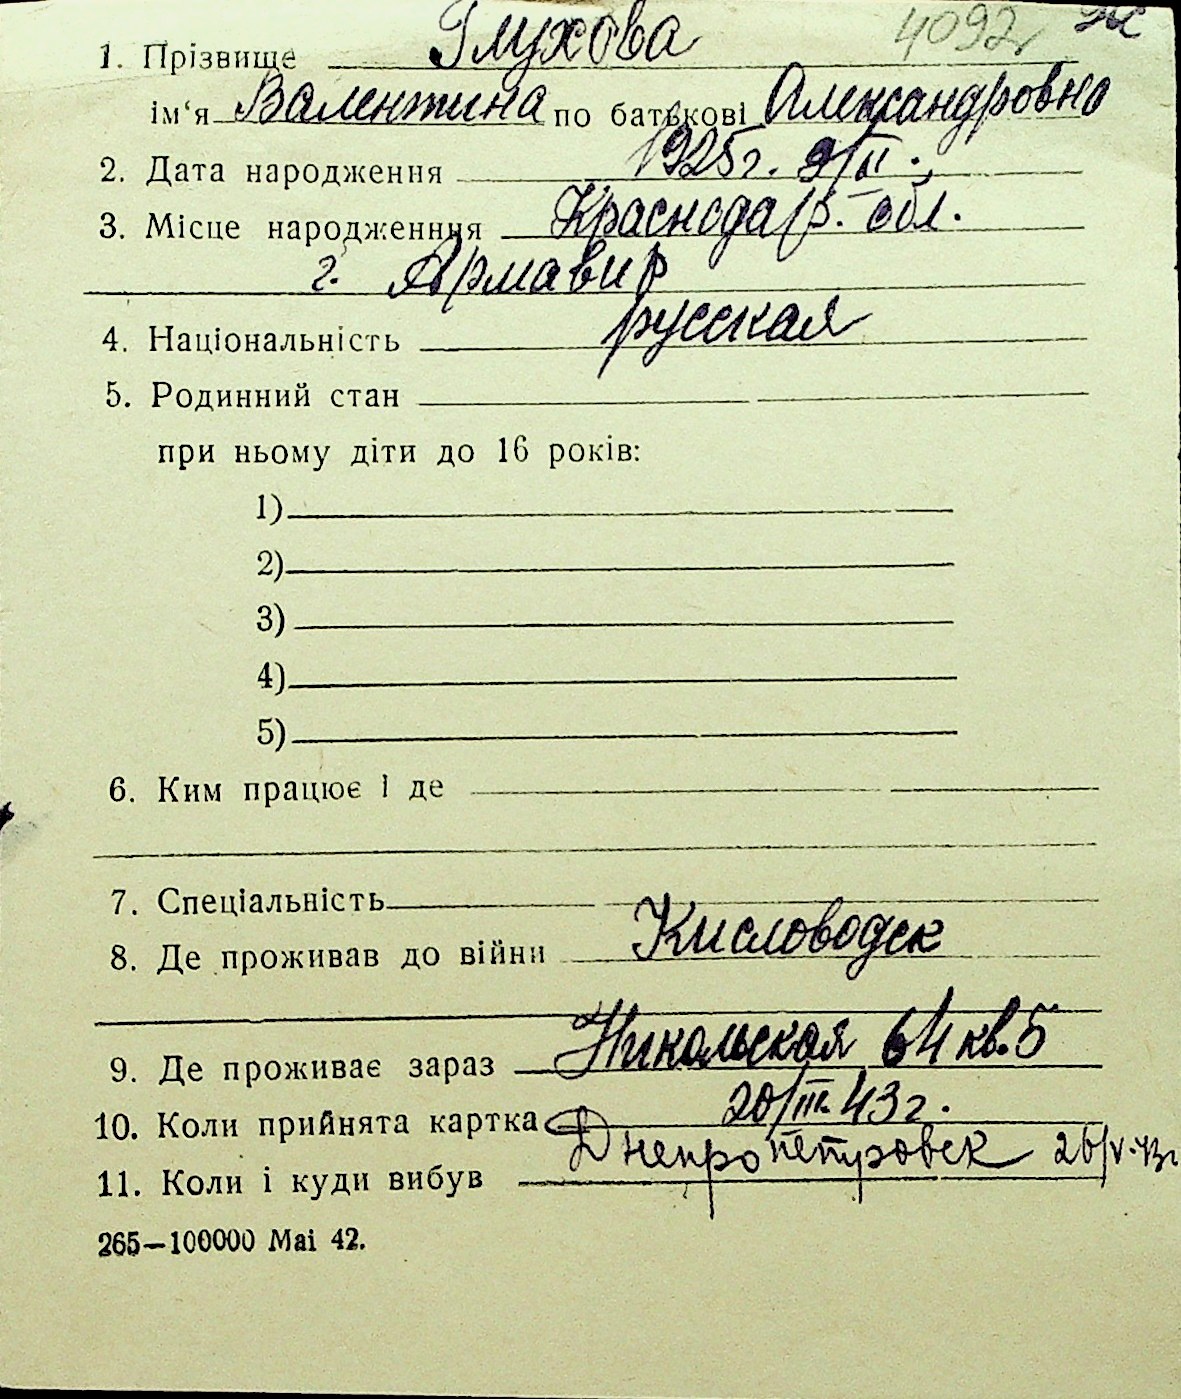 4092
1. Прізвище Глухова
ім'я Валентина по батькові Александровна
2. Дата народження 1925г. 9/II.
3. Місце народженння Краснодар. обл.
г. Армавир
4. Національність русская
5. Родинний стан
при ньому діти до 16 років:
1)
2)
3)
4)
5)
6. Ким працює і де
7. Спеціальність
8. Де проживав до війни Кисловодск
9. Де проживає зараз Никольская 64 кв. 5
10. Коли прийнята картка 20/III. 43 г.
11. Коли і куди вибув Днепропетровск 26/V-43г
265—100000 Mai 42.